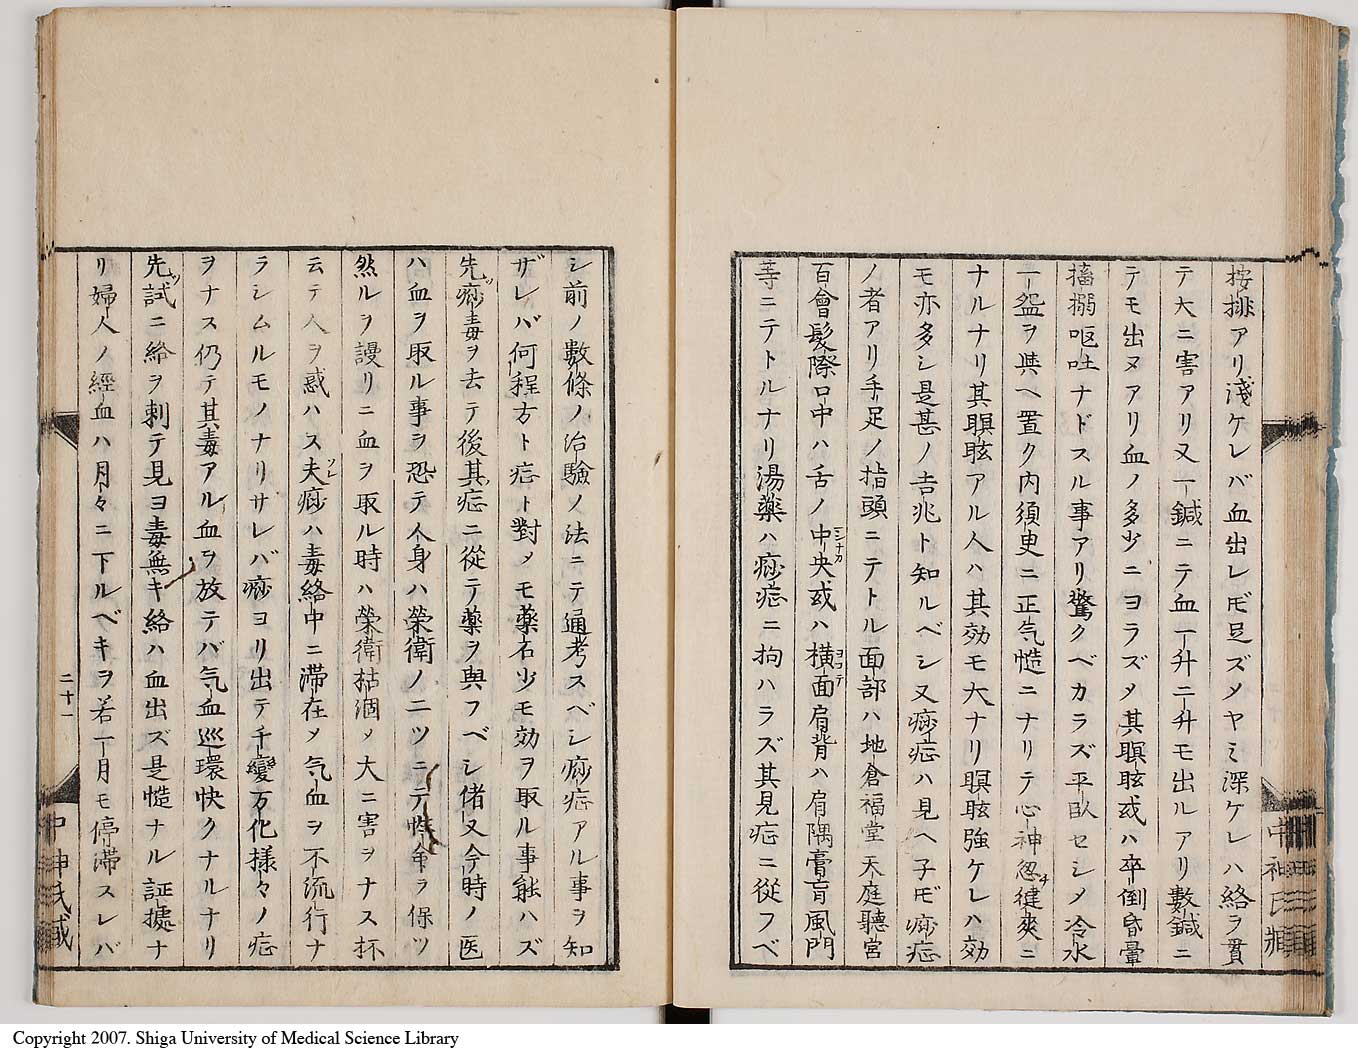 按排アリ淺ケレバ血出レ𪜈足ズメヤミ深ケレハ絡ヲ貫
テ大ニ害アリ又一鍼ニテ血一升二升モ出ルアリ數鍼ニ
テモ出ヌアリ血ノ多少ニヨラズ〆其瞑眩或ハ卒倒昏暈
搐搦呕吐ナドスル事アリ驚クベカラズ平臥セシメ冷水
一盌ヲ與ヘ置ク内須臾ニ正气慥ニナリテ心神忽チ徤爽ニ
ナルナリ其瞑眩アル人ハ其効モ大ナリ瞑眩強ケレハ効
モ亦多シ是甚ノ吉兆ト知ルベシ又痧症ハ見ヘ子𪜈痧症
ノ者アリ手足ノ指頭ニテトル面部ハ地倉福堂天庭聽宮
百會髮際口中ハ舌ノ中央或ハ横面肩背ハ肩隅膏肓風門
等ニテトルナリ湯藥ハ痧症ニ拘ハラズ其見症ニ従フベ
シ前ノ數條ノ治驗ノ法ニテ通考スベシ痧症アル事ヲ知
ザレバ何程方ト症ト對〆モ藥石少モ効ヲ取ル事能ハズ
先ツ痧毒ヲ去テ後其症ニ從テ藥ヲ與フベシ偖又今時ノ医
ハ血ヲ取ル事ヲ恐テ人身ハ榮衛ノ二ツニテ性命ヲ保ツ
然ルヲ謾リニ血ヲ取ル時ハ榮衛枯涸〆大ニ害ヲナス抔
云テ人ヲ惑ハス夫レ痧ハ毒絡中ニ滞在〆气血ヲ不流行ナ
ラシムルモノナリサレバ痧ヨリ出テ千變万化様々ノ症
ヲナス仍テ其毒アル血ヲ放テバ气血巡環快クナルナリ
先ツ試ニ絡ヲ刺テ見ヨ毒無キ絡ハ血出ズ是慥ナル証據ナ
リ婦人ノ經血ハ月々ニ下ルベキヲ若一月モ停滞スレバ
二十一
中神氏藏
中神氏藏
Copyright 2007. Shiga University of Medical Science Library